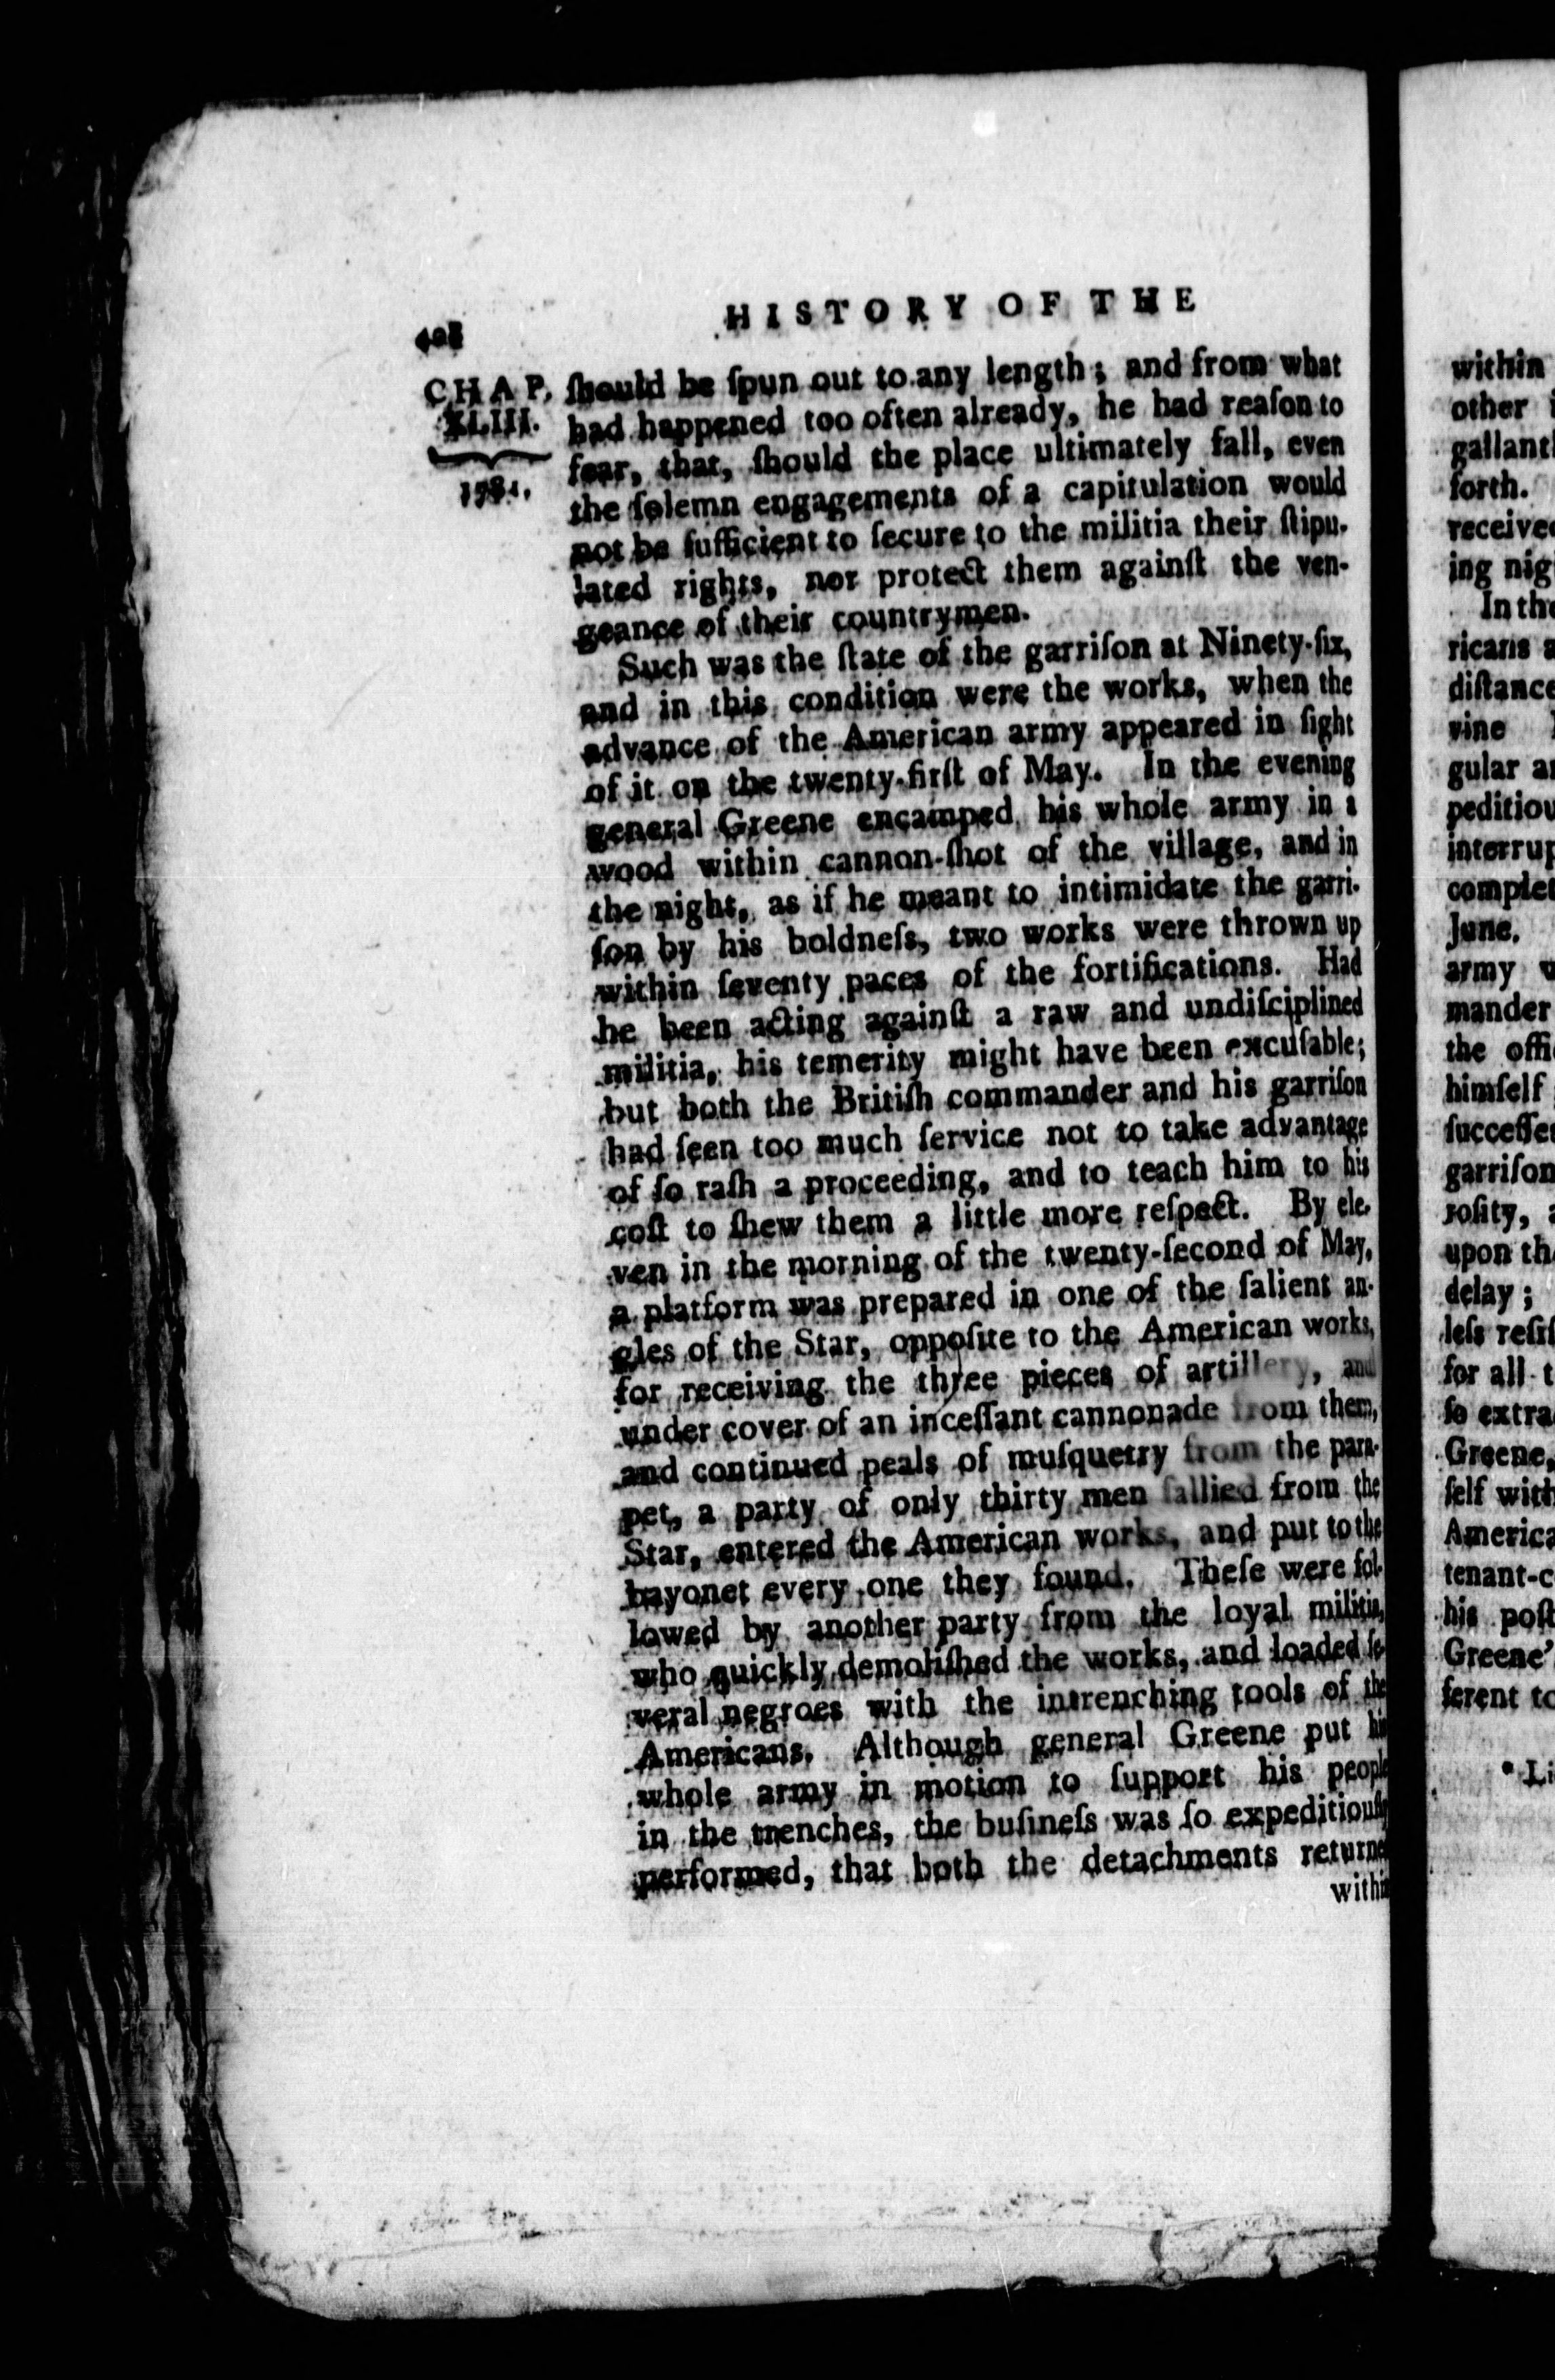 HISTORY OF THE
CHAP.
XLIII.
1781.
ſhould be ſpun out to any length; and from what
had happened too often already, he had reaſon to
fear, that, ſhould the place ultimately fall, even
the ſolemn engagements of a capitulation would
not be ſufficient to ſecure to the militia their ſtipu-
lated rights, nor protect them againſt the ven-
geance of their countrymen.
Such was the ſtate of the garriſon at Ninety-ſix,
and in this condition were the works, when the
advance of the American army appeared in ſight
of it on the twenty-firſt of May. In the evening
general Greene encamped his whole army in a
wood within cannon-ſhot of the village, and in
the night, as if he meant to intimidate the garri-
ſon by his boldneſs, two works were thrown up
within ſeventy paces of the fortifications. Had
he been acting againſt a raw and undiſciplined
militia, his temerity might have been excuſable;
but both the Britiſh commander and his garriſon
had ſeen too much ſervice not to take advantage
of ſo raſh a proceeding, and to teach him to his
coſt to ſhew them a little more reſpect. By ele-
ven in the morning of the twenty-ſecond of May,
a platform was prepared in one of the ſalient an-
gles of the Star, oppoſite to the American works,
for receiving the three pieces of artillery, and
under cover of an inceſſant cannonade from them,
and continued peals of muſquetry from the para-
pet, a party of only thirty men ſallied from the
Star, entered the American works, and put to the
bayonet every one they found. Theſe were fol-
lowed by another party from the loyal militia,
who quickly demoliſhed the works, and loaded ſe-
veral negroes with the intrenching tools of the
Americans. Although general Greene put his
whole army in motion to ſupport his people
in the trenches, the buſineſs was ſo expeditiouſly
performed, that both the detachments returne
withi
within
other i
gallantl
forth.
receive
ing nig
In the
ricans a
diſtance
vine
gular a
peditiou
interrup
complet
June.
army
mander
the offi
himſelf
ſucceſſe
garriſon
roſity,
upon th
delay;
leſs reſiſ
for all t
ſo extra
Greene,
ſelf with
America
tenant-c
his poſt
Greene'
ferent to
* Li